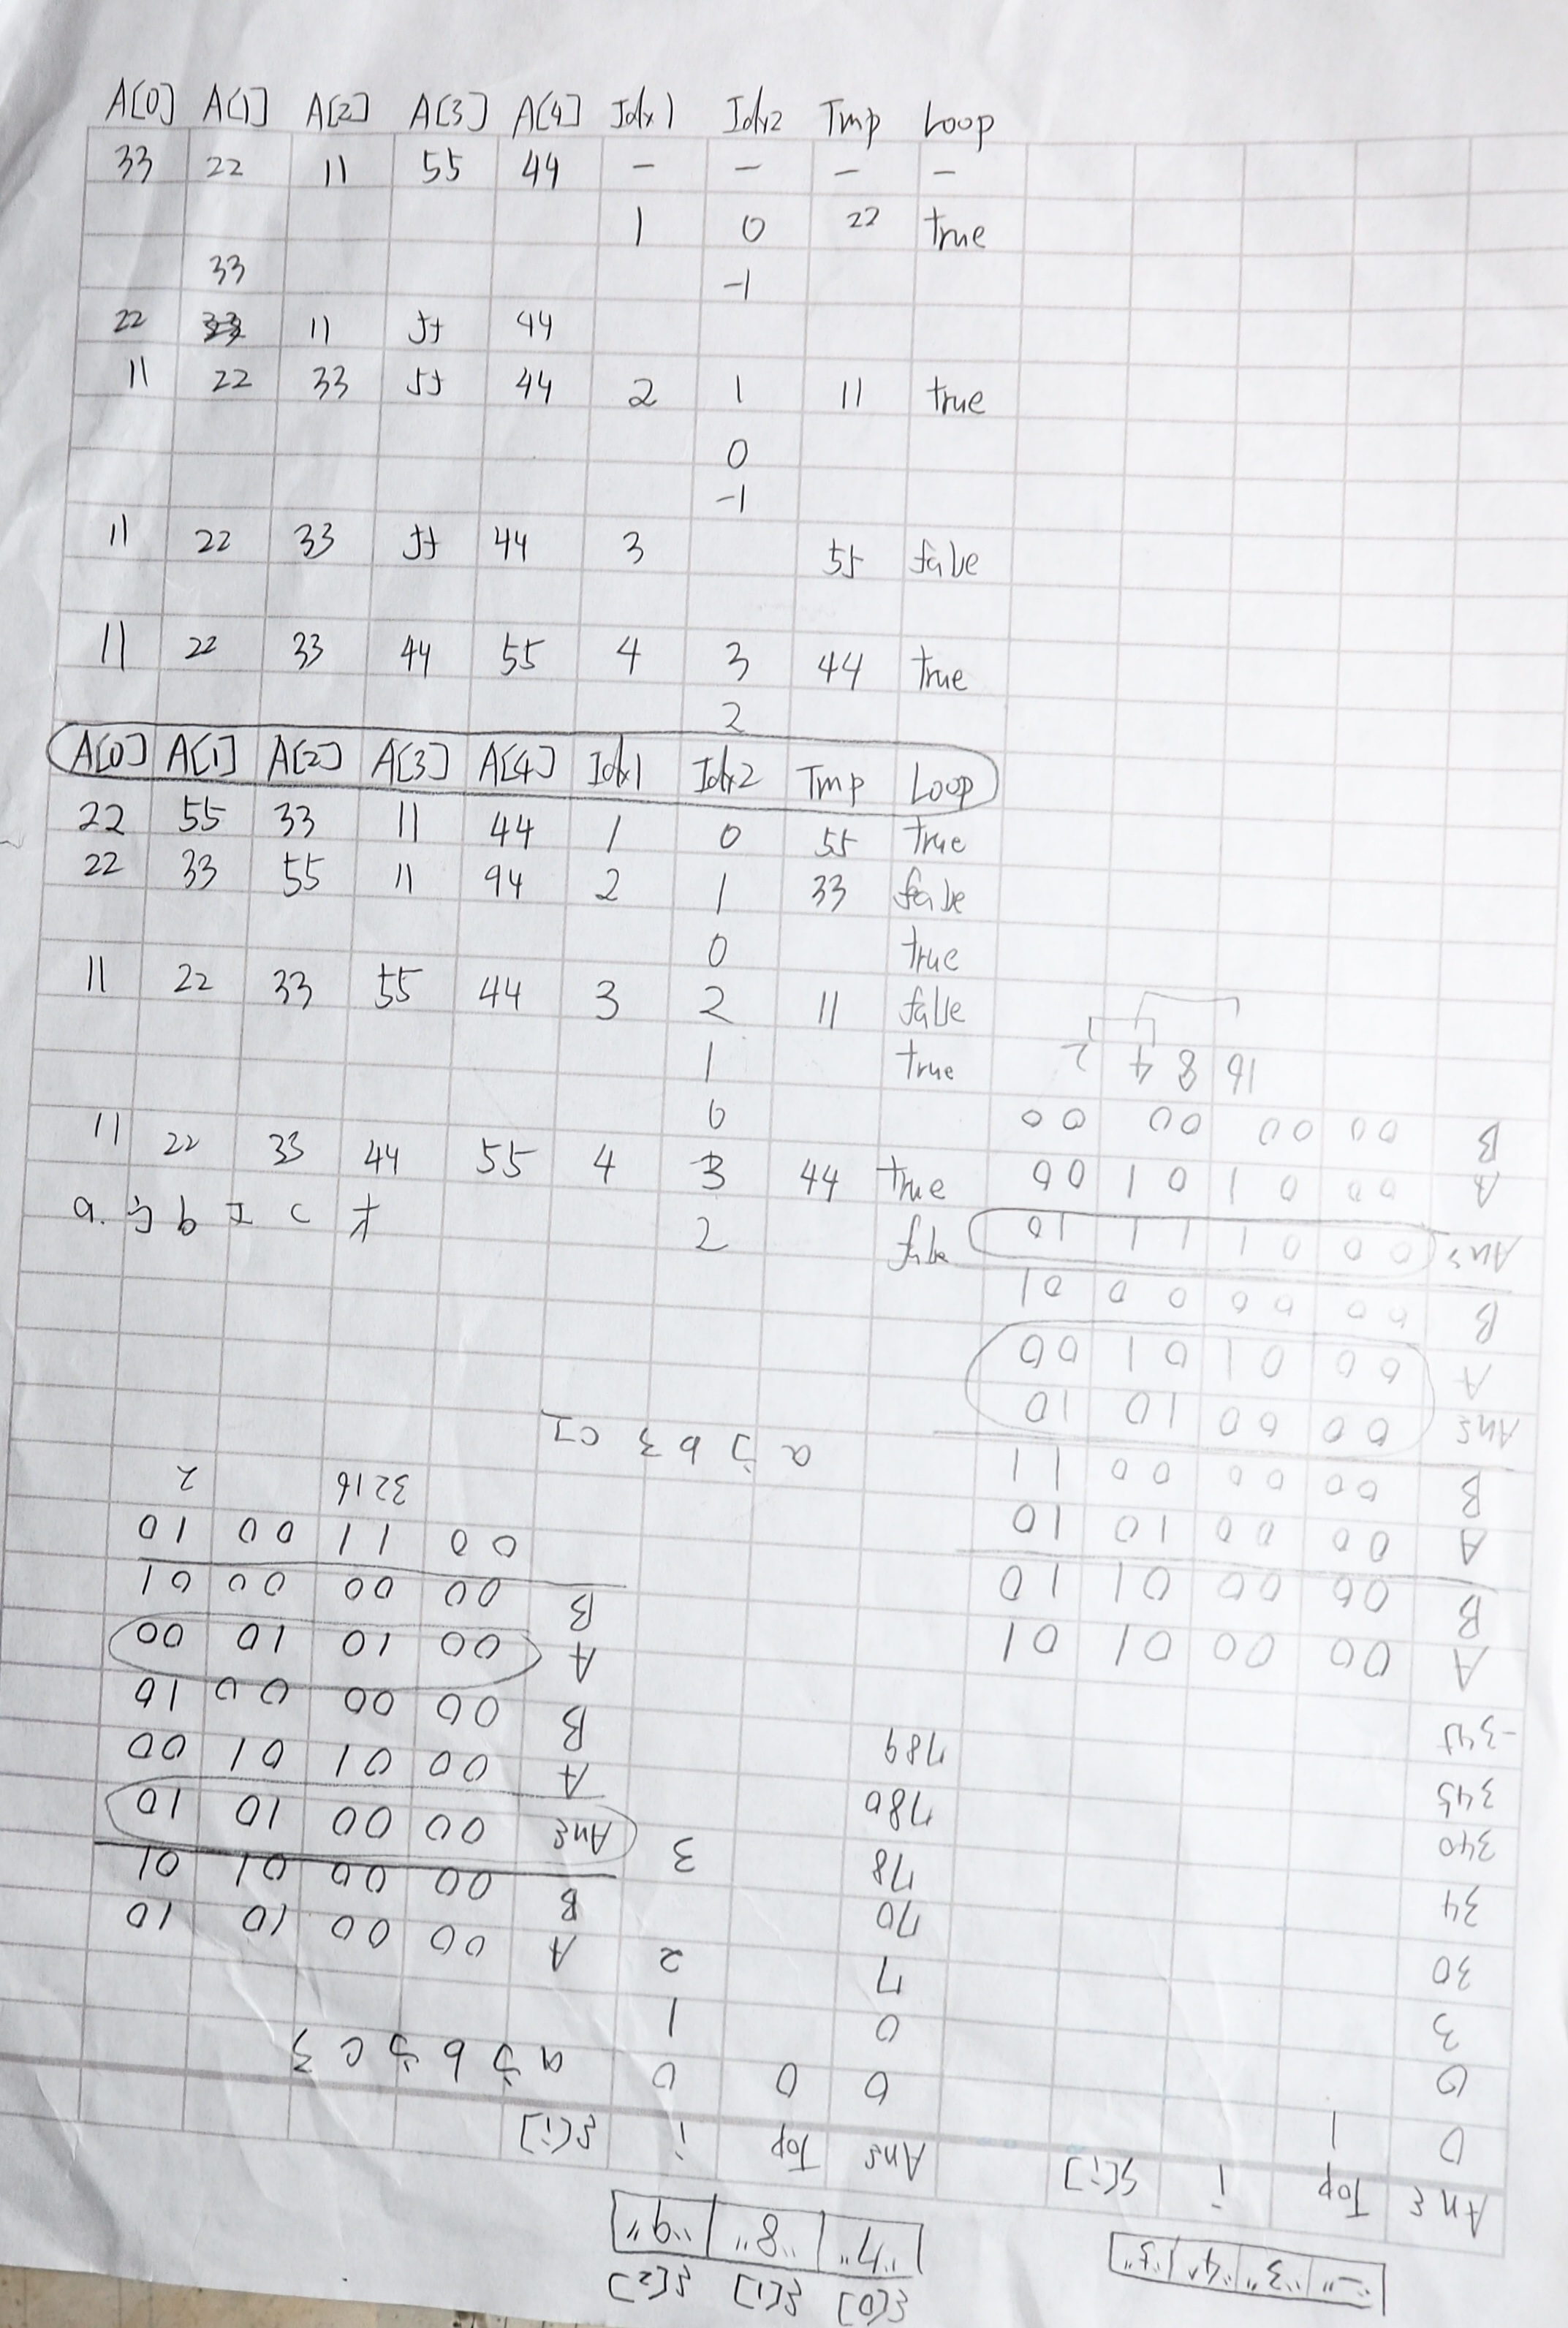 A[0] A[1] A[2] A[3] A[4] Idx1 Idx2 Tmp Loop
33 22 11 55 44 - - - -
1 0 22 true
33 -1
22 11 55 44
11 22 33 55 44 2 1 11 true
0
-1
11 22 33 55 44 3 55 false
11 22 33 44 55 4 3 44 true
2
A[0] A[1] A[2] A[3] A[4] Idx1 Idx2 Tmp Loop
22 55 33 11 44 1 0 55 true
22 33 55 11 94 2 1 33 false
0 true
11 22 33 55 44 3 2 11 false
1 true
0
11 22 33 44 55 4 3 44 true
2 false
"-" "3" "4" "5"
S[0] S[1] S[2]
"7" "8" "9"
Ans Top i S[i]
0 1
0
3
30
34
340
345
-345
A 00 00 01 01
B 00 00 01 10
A 00 00 10 10
B 00 00 00 11
Ans 00 00 10 10
A 00 01 01 00
B 00 00 00 01
Ans 00 01 11 10
A 00 01 01 00
B 00 00 00 00
16 8 4 2
Ans Top i S[i]
0 0 0
0 1
7 2
70
78 3
780
789
a 5 b 5 c 3
A 00 00 10 10
B 00 00 01 01
Ans 00 00 10 10
A 00 01 01 00
B 00 00 00 10
A 00 10 10 00
B 00 00 00 01
00 11 00 10
32 16 2